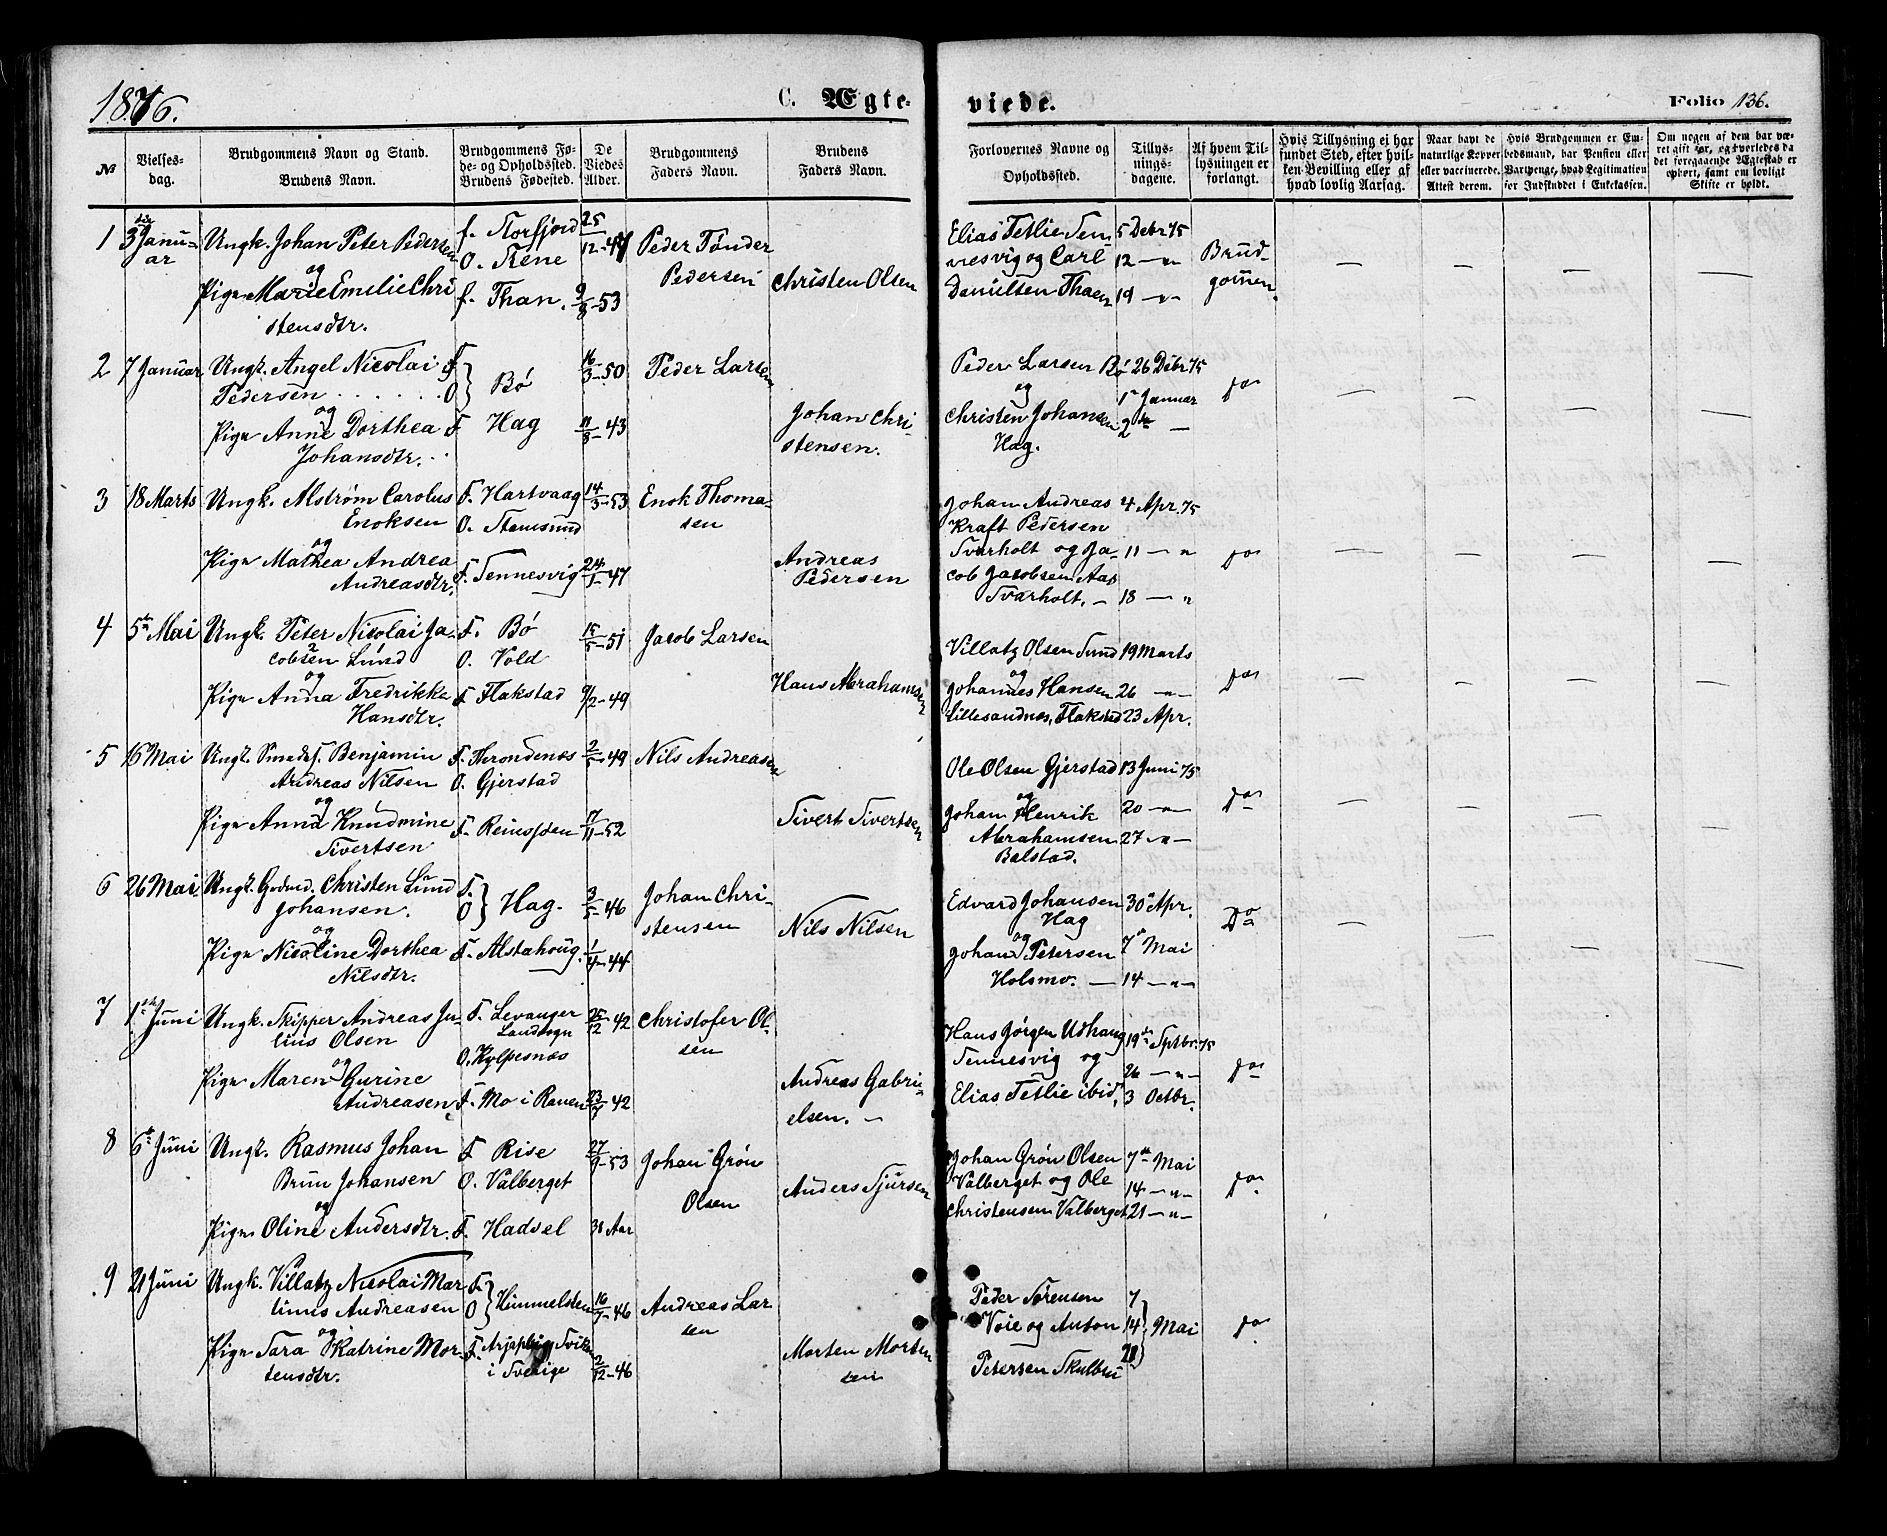 1876.
C. Ægte-
viede.
Folio 136.
No
Vielses-
dag.
Brudgommens Navn og Stand.
Brudens Navn.
Brudgommens Fø-
de- og Opholdssted.
Brudens Fødested.
De
Viedes
Alder.
Brudgommens
Faders Navn.
Brudens
Faders Navn.
Forlovernes Navne og
Opholdssted.
Tillys-
nings-
dagene.
Af hvem Til-
lysningen er
forlangt.
Hvis Tillysning ei har
fundet Sted, efter hvil-
ken Bevilling eller af
hvad lovlig Aarsag.
Naar havt de
naturlige Kopper
eller vaccinerede.
Attest derom.
Hvis Brudgommen er Em-
bedsmand, har Pension eller
Vartpenge, hvad Legitimation
for Indskuddet i Enkekassen.
Om nogen af dem har væ-
ret gift før, og hvorledes da
det foregaaende Ægteskab er
ophørt, samt om lovligt
Skifte er holdt.
1
3die Janu-
ar
Ungk. Johan Peter Pedersen
og
Pige Marie Emilie Chri
stensdtr.
f. Storfjord
O. Stene
f. Than.
25/12-47
9/8-53
Peder Tønder
Pedersen
Christen Olsen
Elias Tetlie Ten-
nesvig og Carl
Danielsen Thaen
5 Debr 75
12 — " —
19 — " —
Brud-
gommen.
2
7 Januar
Ungk. Angel Nicolai
Pedersen . . . . . .
og
Pige Anne Dorthea
Johansdtr.
F
O } Bø
F Hag
16/3-50
11/8-43
Peder Larsen
Johan Chri-
stensen.
Peder Larsen Bø
og
Christen Johansen
Hag.
26 Debr 75
1 Januar
2 —
Do
3
18 Marts
Ungk. Alstrøm Carolus
Enoksen
og
Pige Mathea Andrea
Andreasdtr.
F. Hartvaag
O. Stemsund
F. Tennesvig
14/3-53
24/1-47
Enok Thoma-
sen
Andreas
Pedersen
Johan Andreas
Kraft Pedersen
Svarholt og Ja-
cob Jacobsen Aas
Svarholt. —
4 Apr. 75
11 — "
18 — "
Do
4
5te Mai
Ungk. Peter Nicolai Ja-
cobsen Lund
og
Pige Anna Fredrikke
Hansdtr.
F. Bø
O. Vold
F Flakstad
15/5-51
9/2-49
Jacob Larsen
Hans Abrahamsen
Villatz Olsen Sund
og
Johannes Hansen
Lillesandnes, Flakstad
19 Marts
26 — " —
23 Apr.
Do
5
16 Mai
Ungk. Benjamin
Andreas Nilsen
og
Pige Anna Knudmine
Sivertsen
F. Throndenæs
O. Gjerstad
F. Reine
49
7/11-52
Nils Andreasen
Sivert Sivertsen
Ole Olsen Gjerstad
og
Johan Henrik
Abrahamsen
Balstad.
13 Juni 75
20 — " —
27 — " —
Do
6
26 Mai
Ungk. Christen Lund
Johansen.
og
Pige Nicoline Dorthea
Nilsdtr.
F.
O } Hag.
F. Alstahoug.
3/5-46
1/4-44
Johan Chri-
stensen
Nils Nilsen
Edvard Johansen
Hag
og
Johan Petersen
Holsmo. —
30 Apr.
7 Mai
14 — " —
Do
7
1ste Juni
Ungk. Skipper Andreas Ju-
lius Olsen
og
Pige Maren Gurine
Andreasen
F. Levanger
Landsogn
O.
F. Mo i Ranen
25/12 42
23/7 42
Christofer Ol-
sen
Andreas Gabri-
elsen. —
Hans Jørgen Udhaug
Tennesvig og
Elias Tetlie ibid.
19de Sptbr. 75
26 — " —
3 Octbr.
Do
8
6te Juni
Ungk. Rasmus Johan
Brun Johansen
og
Pige Oline Andersdtr.
F Rise
O. Valberget
F. Hadsel
27/9-53
31 Aar
Johan Grøn
Olsen
Anders Sjursen
Johan Grøn Olsen
Valberget og Ole
Christensen Valberget
7de Mai
14 — " —
21 — " —
Do
9
21 Juni
Ungk. Villatz Nicolai Mar
tinus Andreasen
og
Pige Sara Katrine Mor-
tensdtr.
F.
O } Himmelsten
F.
i Sverige
16/7-46
2/12-46
Andreas Lar
sen
Morten Morten
sen
Peder Sørensen
Voie og Anton
Petersen Skulbru
7
14 } Mai
21
Do